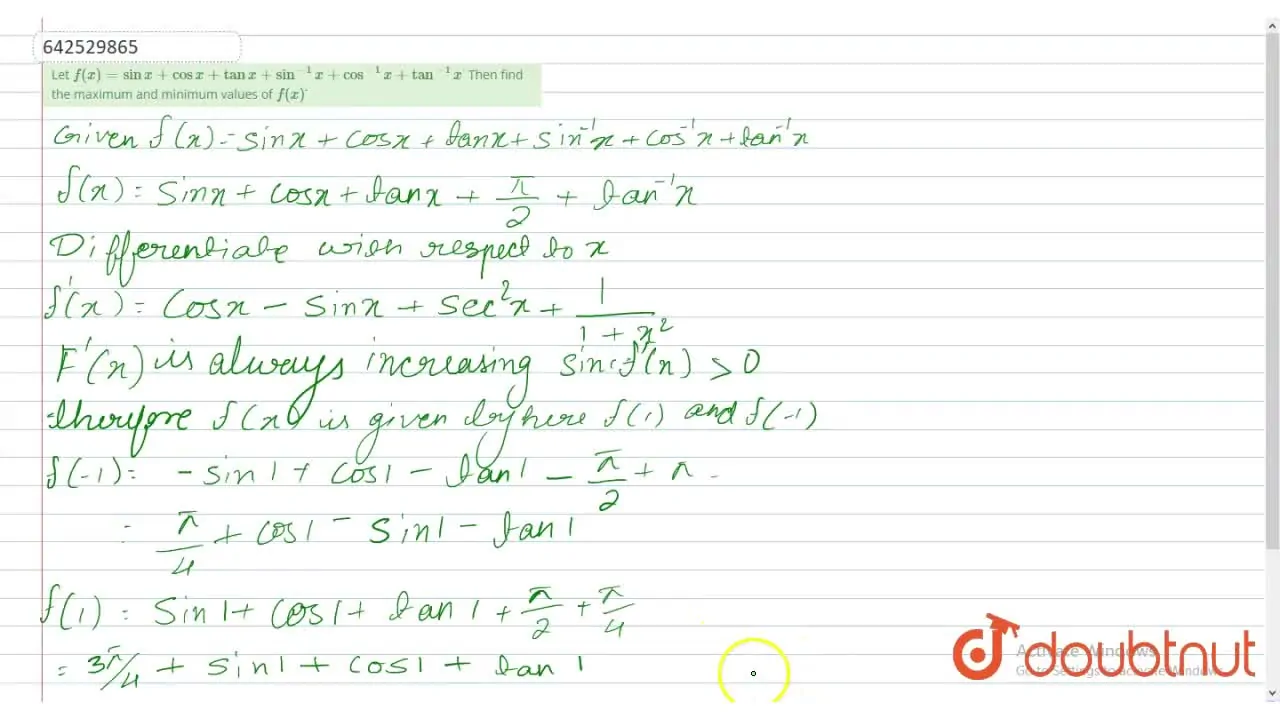 642529865
Let f(x) = sin x + cos x + tan x + sin⁻¹ x + cos⁻¹ x + tan⁻¹ x Then find
the maximum and minimum values of f(x)˙
Given f(x) = sinx + cosx + tanx + sin⁻¹x + cos⁻¹x + tan⁻¹x
f(x) = sinx + cosx + tanx + π/2 + tan⁻¹x
Differentiate with respect to x
f'(x) = cosx − sinx + sec²x + 1/(1 + x²)
F'(x) is always increasing f'(x) > 0
therefore f(x) is given by here f(1) and f(-1)
f(-1) = - sin1 + cos1 - tan1 - π/2 + π -
= π/4 + cos1 - sin1 - tan1
f(1) = sin1 + cos1 + tan1 + π/2 + π/4
= 3π/4 + sin1 + cos1 + tan1
doubtnut
Activate Windows
Go to Settings to activate Windows.